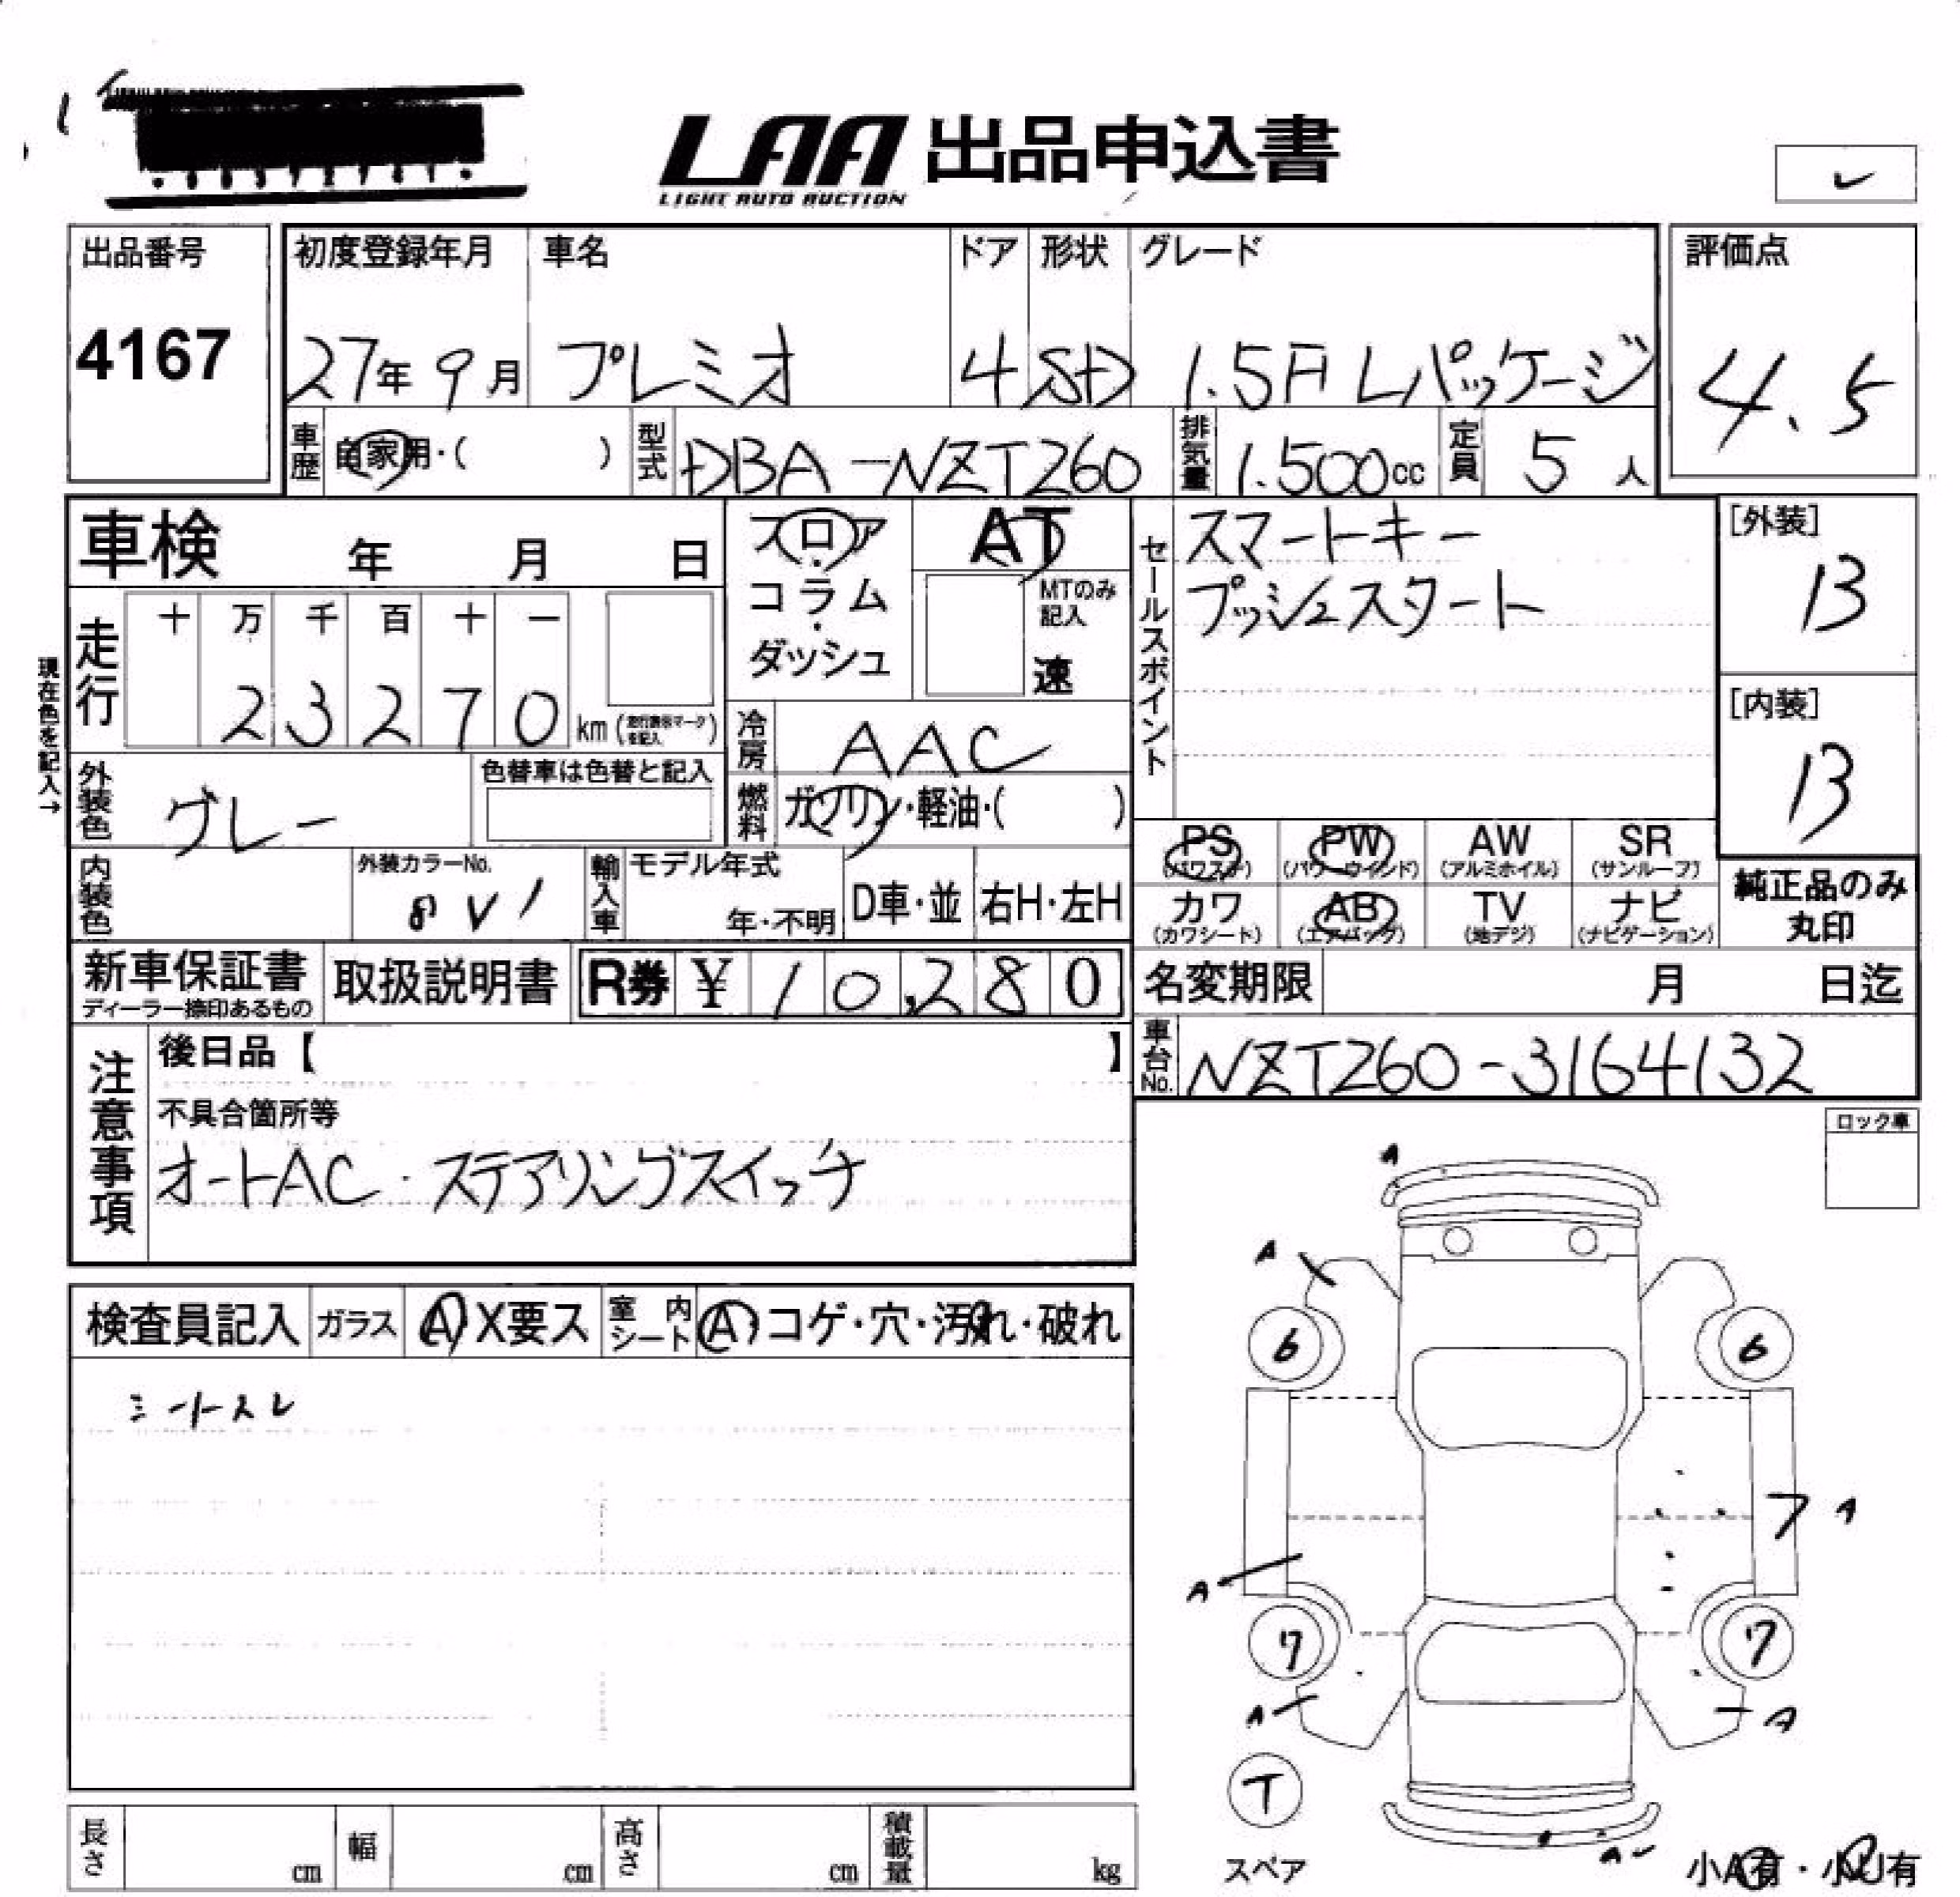 LAA 出品申込書
LIGHT AUTO AUCTION
出品番号
4167
初度登録年月 車名 ドア 形状 グレード
27年9月 プレミオ 4 SD 1.5F Lパッケージ
評価点
4.5
車歴 自家用・( ) 型式 DBA-NZT260 排気量 1.500cc 定員 5人
車検 年 月 日
フロア・コラム・ダッシュ
AT
MTのみ記入
速
セールスポイント
スマートキー
プッシュスタート
[外装]
13
[内装]
13
現在色を記入→
走行 十 万 千 百 十 一
23270 km (走行表示マークを記入)
冷房 AAC
外装色 グレー 色替車は色替と記入
燃料 ガソリン・軽油・( )
PS (パワステ) PW (パワーウインド) AW (アルミホイル) SR (サンルーフ)
カワ (カワシート) AB (エアバッグ) TV (地デジ) ナビ (ナビゲーション)
純正品のみ丸印
内装色 外装カラーNo. 8V1 輸入車 モデル年式 年・不明 D車・並 右H・左H
新車保証書 ディーラー捺印あるもの 取扱説明書 R券 ¥ 10,280
名変期限 月 日迄
車台No. NZT260-3164132
注意事項
後日品【 】
不具合箇所等
オートAC・ステアリングスイッチ
ロック車
検査員記入 ガラス A X要ス 室内シート A コゲ・穴・汚れ・破れ
シートスレ
A
A
6 6
A
A
7 7
A A
T
スペア
A
小A有・小U有
長さ cm 幅 cm 高さ cm 積載量 kg